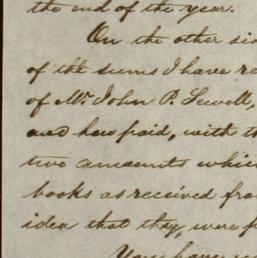 the end of the year.
On the other sid
of the sums I have re
of Mr. John P. Sewell,
and how paid, with th
two amounts which
books as received from
idea that they were p
You have